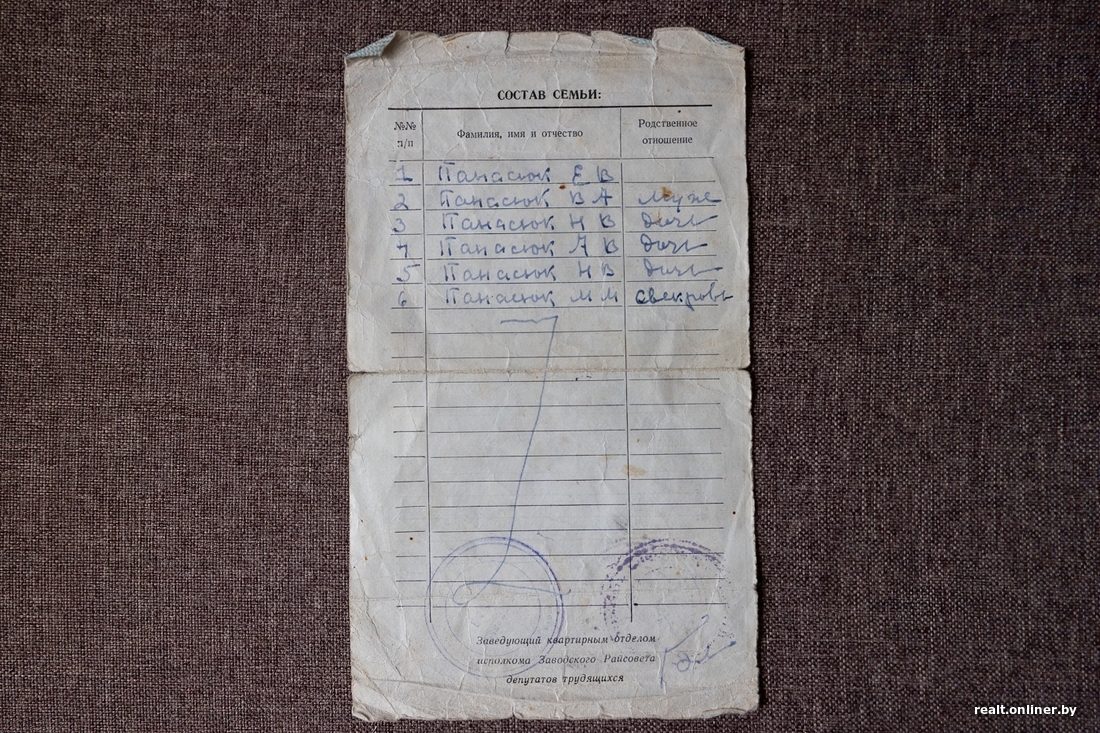 СОСТАВ СЕМЬИ:
№№ п/п Фамилия, имя и отчество Родственное отношение
1 Панасюк Е В
2 Панасюк В А муж
3 Панасюк Н В дочь
4 Панасюк Л В дочь
5 Панасюк Н В дочь
6 Панасюк М М свекровь
Заведующий квартирным отделом
исполкома Заводского Райсовета
депутатов трудящихся
realt.onliner.by